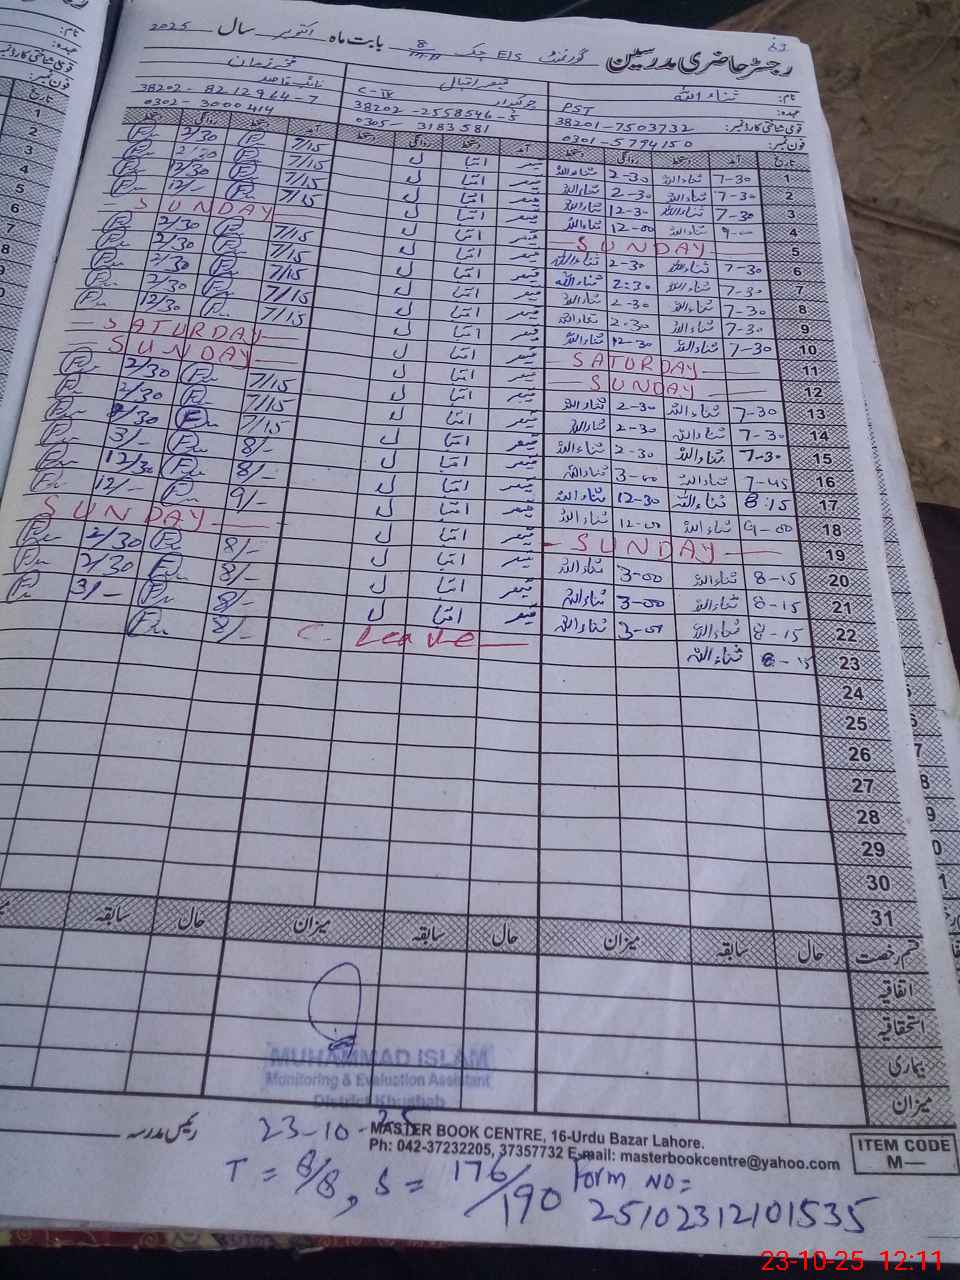 رجسٹر حاضری مدرسین گورنمنٹ E/S چک 8 بابت ماہ اکتوبر سال 2025
نام: ثناء اللہ قیصر اقبال
عہدہ: PST چوکیدار C-IV نائب قاصد
قومی شناختی کارڈ نمبر: 38201-7503732 38202-2558546-5 38202-8212964-7
فون نمبر: 0301-5794150 0305-3183581 0302-3000414
تاریخ آمد دستخط روانگی دستخط آمد دستخط روانگی دستخط آمد دستخط روانگی دستخط
1 7-30 ثناء اللہ 2-30 ثناء اللہ 7/15 2/30
2 7-30 ثناء اللہ 2-30 ثناء اللہ 7/15 2/30
3 7-30 ثناء اللہ 12-30 ثناء اللہ 7/15 12/30
4 9-- ثناء اللہ 12-00 ثناء اللہ 7/15 12/-
5 SUNDAY SUNDAY
6 7-30 ثناء اللہ 2-30 ثناء اللہ 7/15 2/30
7 7-30 ثناء اللہ 2:30 ثناء اللہ 7/15 2/30
8 7-30 ثناء اللہ 2-30 ثناء اللہ 7/15 2/30
9 7-30 ثناء اللہ 2-30 ثناء اللہ 7/15 2/30
10 7-30 ثناء اللہ 12-30 ثناء اللہ 7/15 12/30
11 SATURDAY SATURDAY
12 SUNDAY SUNDAY
13 7-30 ثناء اللہ 2-30 ثناء اللہ 7/15 2/30
14 7-30 ثناء اللہ 2-30 ثناء اللہ 7/15 2/30
15 7-30 ثناء اللہ 2-30 ثناء اللہ 7/15 2/30
16 7-45 ثناء اللہ 3-00 ثناء اللہ 8/- 3/-
17 8:15 ثناء اللہ 12-30 ثناء اللہ 8/- 12/30
18 9-00 ثناء اللہ 12-00 ثناء اللہ 9/- 12/-
19 SUNDAY SUNDAY
20 8-15 ثناء اللہ 3-00 ثناء اللہ 8/- 2/30
21 8-15 ثناء اللہ 3-00 ثناء اللہ 8/- 2/30
22 8-15 ثناء اللہ 3-00 ثناء اللہ 8/- 3/-
23 8-15 ثناء اللہ C. Leave 8/-
24
25
26
27
28
29
30
31
قسم رخصت حال سابقہ میزان حال سابقہ میزان حال سابقہ
اتفاقیہ
استحقاقیہ
بیماری
میزان
MUHAMMAD ISLAM
Monitoring & Evaluation Assistant
District Khushab
رئیس مدرسہ
23-10-25
MASTER BOOK CENTRE, 16-Urdu Bazar Lahore.
Ph: 042-37232205, 37357732 E-mail: masterbookcentre@yahoo.com
ITEM CODE
M—
T = 8/8, S = 176/190 Form NO=
25102312101535
23-10-25 12:11